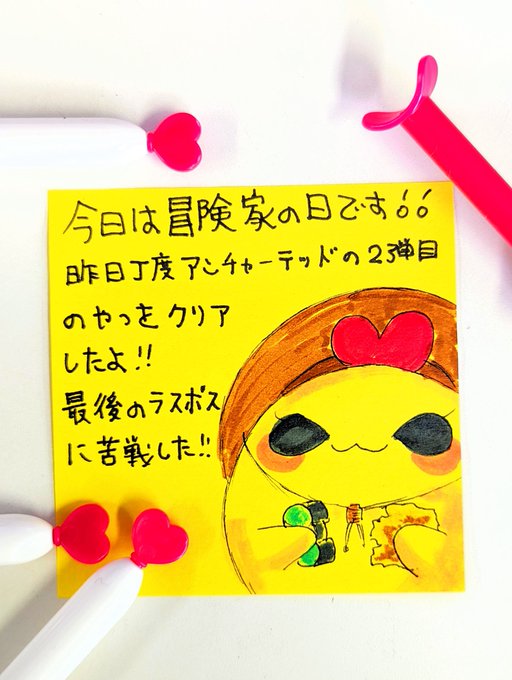 今日は冒険家の日です!!
昨日丁度アンチャーテッドの2弾目
のやつをクリア
したよ!!
最後のラスボス
に苦戦した!!